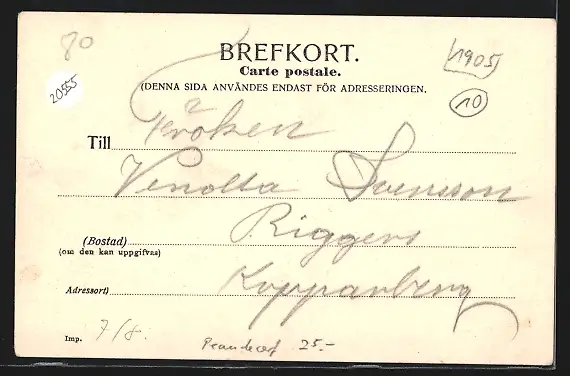 80
20555
BREFKORT.
Carte postale.
(DENNA SIDA ANVÄNDES ENDAST FÖR ADRESSERINGEN.
1905
10
Till Fröken
Svensson
(Bostad) Riggers
(om den kan uppgifvas)
Adressort) Kopparberg
Imp. 7/8.
25.-